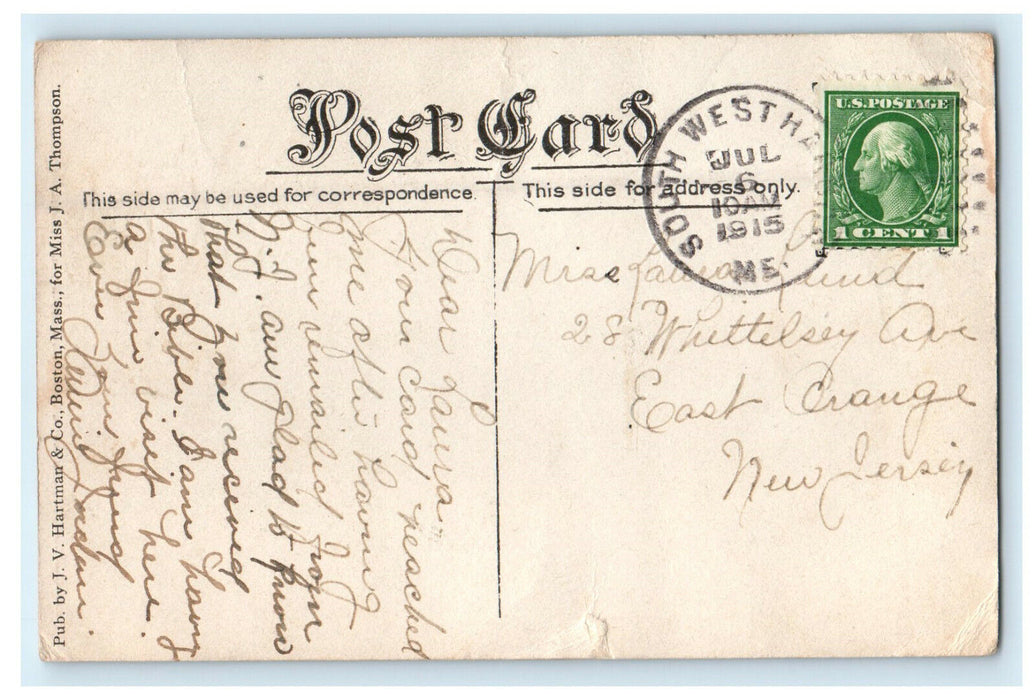 Post Card
This side may be used for correspondence.
This side for address only.
SOUTH WEST HA
JUL
6
10 AM
1915
ME.
U.S. POSTAGE
1 CENT 1
Dear Laura
Your card reached
me after having
been remailed from
N.J. am glad to know
that you received
the Bible. I am having
a fine visit here.
Ever your friend
Miss Laura Lund
28 Whittelsey Ave
East Orange
New Jersey
Pub. by J. V. Hartman & Co., Boston, Mass., for Miss J. A. Thompson.